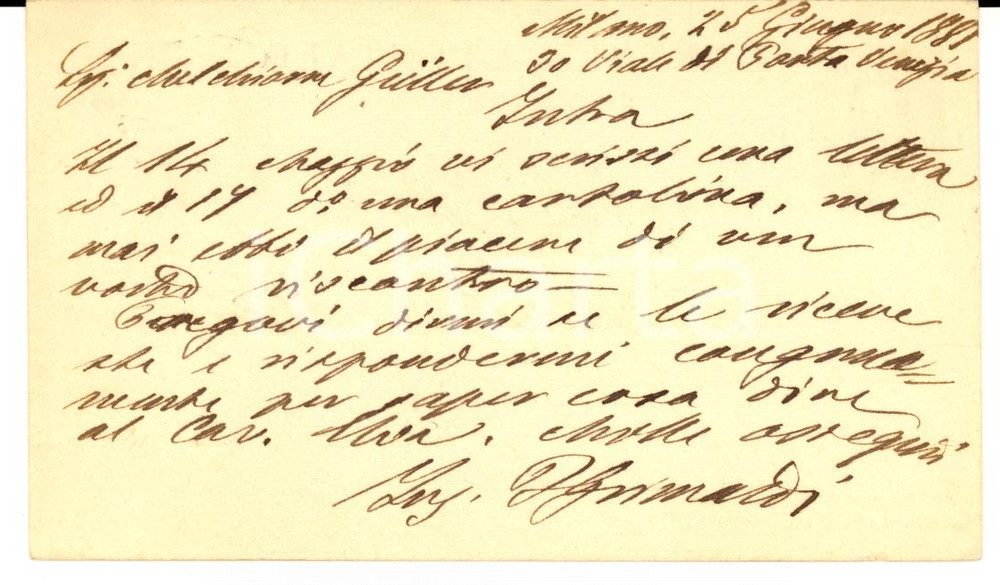 Milano, 25 Giugno 1881
30 Viale di Porta Venezia
Sig. Melchiorre Güller
Intra
Il 14 Maggio vi scrissi una lettera
ed il 17 do una cartolina, ma
mai ebbi il piacere di un
vostro riscontro—
Pregovi dirmi se le riceve
ste e rispondermi congrua-
mente per saper cosa dire
al Cav. Molte ossequi
Ing. Grimaldi
iCharta